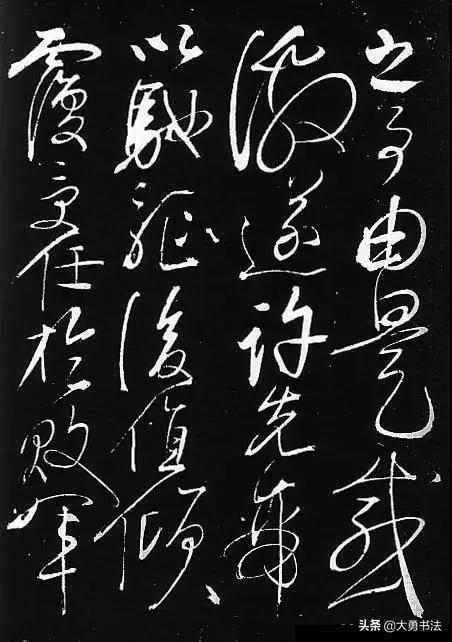 之事由是感
激遂許先帝
以馳驅後值傾
覆受任於敗軍
头条 @大勇书法